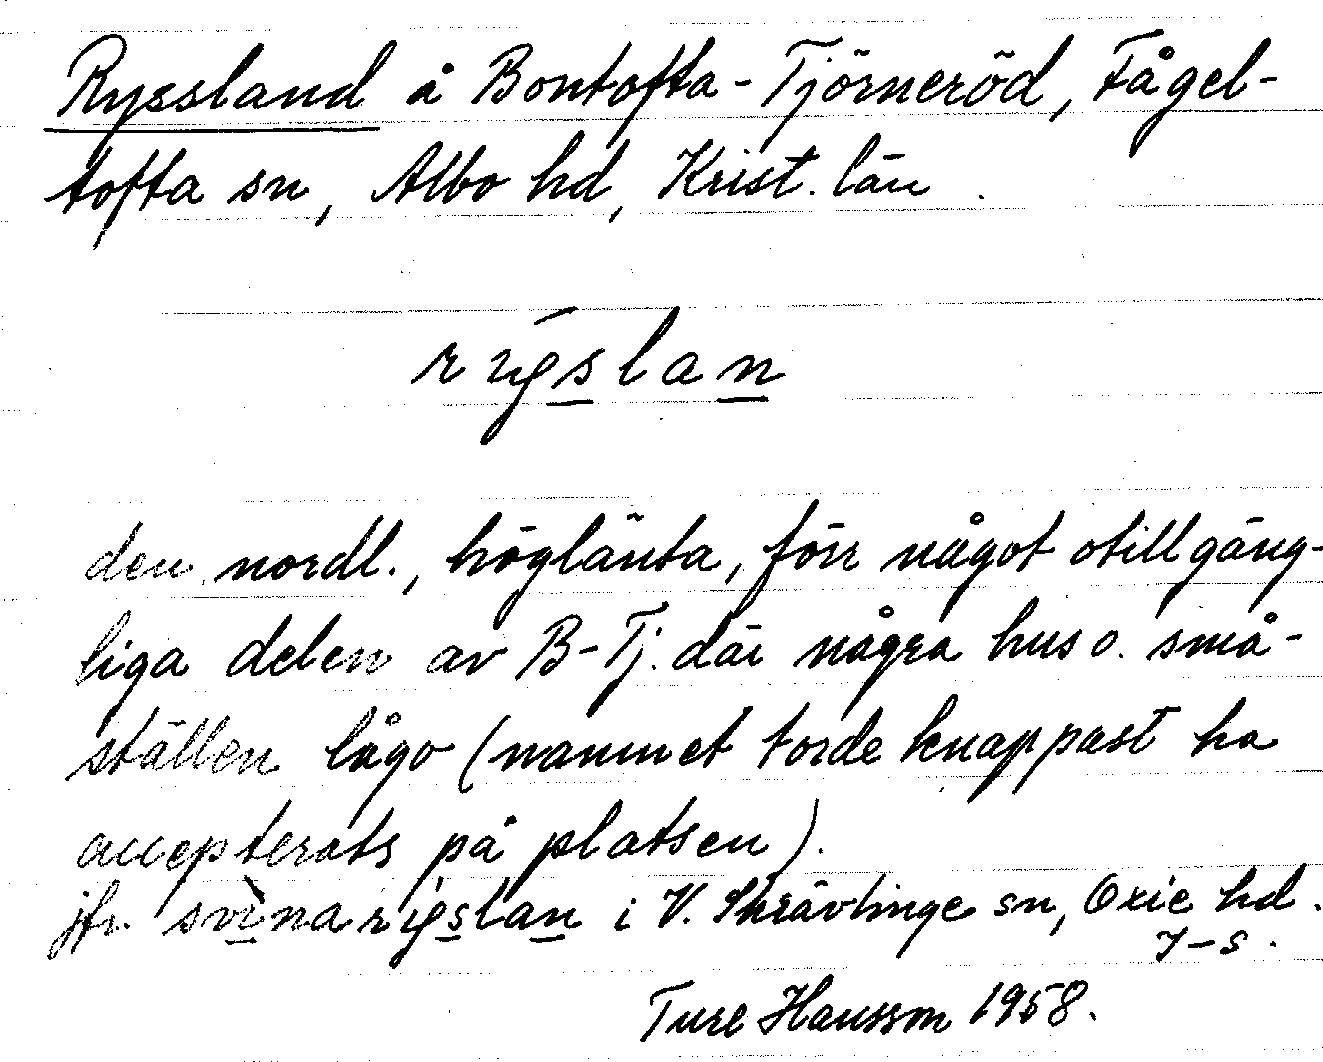 Ryssland å Bontofta-Tjörneröd, Fågel-
tofta sn, Albo hd, Krist. län.
rygslan
den nordl., höglänta, förr något otillgäng-
liga delen av B-Tj. där några hus o. små-
ställen lågo (namnet torde knappast ha
accepterats på platsen).
jfr. svinarigslan i V. Skrävlinge sn, Oxie hd.
Ture Hansson 1958.